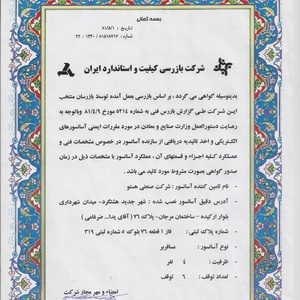 بسمه تعالی
تاریخ : ۸۱/۵/۱
شماره : ۸۱۵۱۸۷۱۷ - ۱۳۴۰ / ۲۲
شرکت بازرسی کیفیت و استاندارد ایران
بدینوسیله گواهی می گردد ، بر اساس بازرسی بعمل آمده توسط بازرسان منتخب
این شرکت طی گزارش بازرس فنی به شماره ۵۲۱۴ مورخ ۸۱/۴/۹ وباتوجه به
رعایت دستورالعمل وزارت صنایع و معادن در مورد مقررات ایمنی آسانسورهای
الکتریکی و اخذ تائیدیه دریافتی از سازنده آسانسور در خصوص مشخصات فنی و
عملکرد کلیه اجزاء و قسمتهای آن ، عملکرد آسانسور با مشخصات ذیل در زمان
صدور گواهی بصورت مشروط مورد تائید می باشد.
نام تامین کننده آسانسور : شرکت صنعتی هستو
آدرس دقیق آسانسور نصب شده : شهر جدید هشتگرد، میدان شهرداری
بلوار ارکیده - ساختمان مرجان - پلاک ۷۶ (آقای ... ضرغامی )
شماره پلاک ثبتی : فاز ۱ قطعه ۷۶ بلوک ۵ شماره ثبتی ۳۱۹
نوع آسانسور : مسافربر
ظرفیت : ۴ نفر
تعداد توقف : ۶ توقف
امضاء و مهر مجاز شرکت